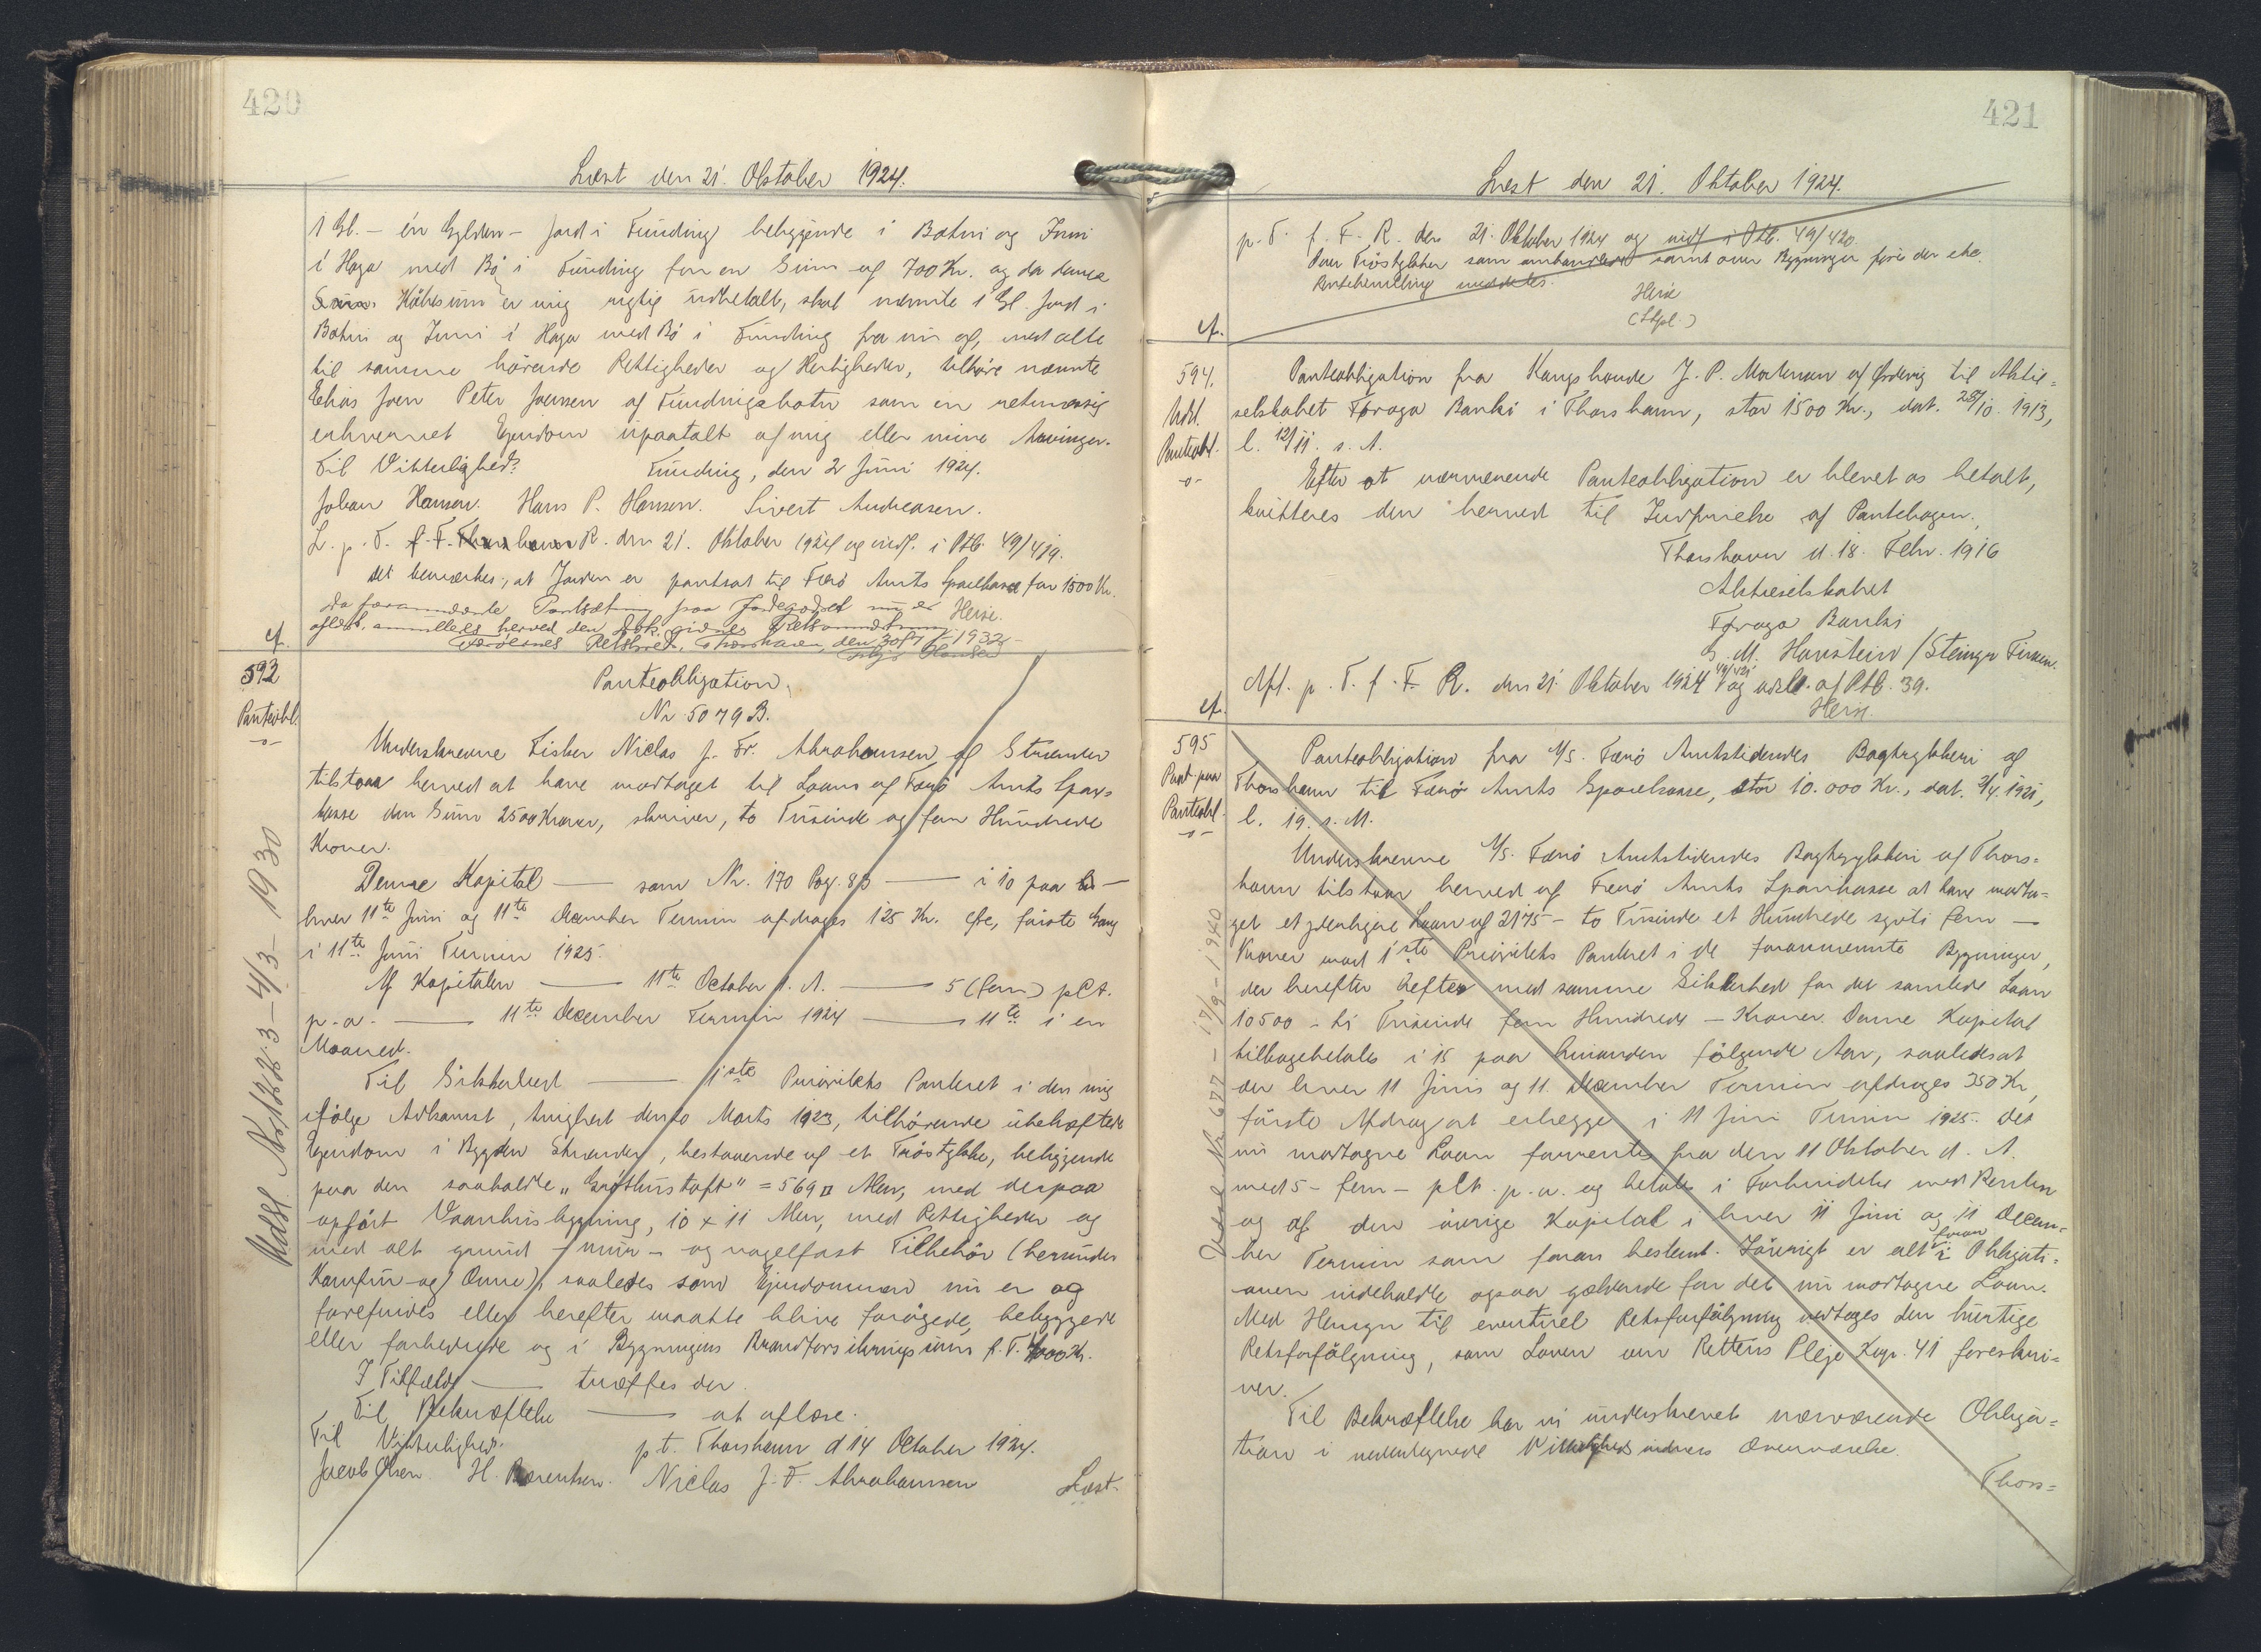 420
Læst den 21. Oktober 1924.
1 Gl. - én Gylden - Jord i Funding beliggende i Botni og Inni
i Haga med Bø i Funding for en Sum af 700 Kr. og da denne
Købesum er mig rigtig udbetalt, skal nævnte 1 Gl. Jord i
Botni og Inni i Haga med Bø i Funding fra nu af, med alle
til samme hørende Rettigheder og Herligheder, tilhøre nævnte
Elias Joen Peter Joensen af Fundingsbotn som en retmæssig
erhvervet Ejendom upaatalt af mig eller mine Arvinger.
Til Vitterlighed: Funding, den 2 Juni 1924.
Johan Hansen. Hans P. Hansen. Sivert Andreasen.
L. p. T. f. F. R. den 21. Oktober 1924 og indf. i Ptb. 49/419.
Det bemærkes, at Jorden er pantsat til Færø Amts Sparekasse for 1500 Kr.
Heise.
Da forannævnte Pantsætning paa Jordegodset nu er
aflæst, annulleres herved den Dok. givne Retsanmærkning
Færøernes Retskreds, Thorshavn, den 30/7 1932
cf.
593
Panteobl.
-o-
Panteobligation.
Nr. 5079 B.
Underskrevne Fisker Niclas J. Fr. Abrahamsen af Strænder
tilstaar herved at have modtaget til Laans af Færø Amts Spare-
kasse den Sum 2500 Kroner, skriver, to Tusinde og fem Hundrede
Kroner.
Denne Kapital — som Nr. 170 Pag. 85 — i 10 paa h —
hver 11te Juni og 11te December Termin afdrages 125 Kr. etc, første Gang
i 11te Juni Termin 1925.
Af Kapitalen — 11te October d. A. — 5 (fem) pCt.
p. a. — 11te December Termin 1924 — 11te i en
Maaned.
Til Sikkerhed — 1ste Prioritets Panteret i den mig
ifølge Adkomst, tinglæst den 10 Marts 1923, tilhørende ubehæftede
Ejendom i Bygden Strænder, bestaaende af et Trøstykke, beliggende
paa den saakaldte „Gróthústoft" = 569 □ Alen, med derpaa
opført Vaanhusbygning, 10 x 11 Alen, med Rettigheder og
med alt grund - mur - og nagelfast Tilbehør (herunder
Komfur og Ovne), saaledes som Ejendommen nu er og
forefindes eller herefter maatte blive forøgede, bebyggede
eller forbedrede og i Bygningens Brandforsikringssum p. T. 4000 Kr.
I Tilfælde — træffes der.
Til Bekræftelse — at aflæse.
Til Vitterlighed. p. t. Thorshavn d 14 October 1924.
Jacob Olsen. H. Berentsen. Niclas J. F. Abrahamsen
Læst.
Udsl. 3-4/3-1930
421
Læst den 21. Oktober 1924.
p. T. f. F. R. den 21. Oktober 1924 og indf. i Ptb. 49/420.
Heise
(Stpl.)
cf.
594.
Udsl.
Panteobl.
-o-
Panteobligation fra Kongsbonde J. P. Mortensen af Ørdevig til Aktie-
selskabet Føroya Banki i Thorshavn, stor 1500 Kr., dat. 28/10. 1913,
l. 12/11. s. A.
Efter at nærværende Panteobligation er blevet os betalt,
kvitteres den herved til Udslettelse af Pantebogen.
Thorshavn d. 18. Febr. 1916
Aktieselskabet
Føroya Banki
G. M. Hanstein / Steingr.
Afl. p. T. f. F. R. den 21. Oktober 1924 49/421 og udsl. af Ptb. 39.
Heise.
cf.
595
Pant paa
Panteobl.
-o-
Panteobligation fra A/S. Færø Amtstidendes Bogtrykkeri af
Thorshavn til Færø Amts Sparekasse, stor 10.000 Kr., dat. 2/4. 1921,
l. 19. s. M.
Underskrevne A/S. Færø Amtstidendes Bogtrykkeri af Thors-
havn tilstaar herved af Færø Amts Sparekasse at have modta-
get et yderligere Laan af 2175 - to Tusinde et Hundrede syvti fem -
Kroner mod 1ste Prioritets Panteret i de forannævnte Bygninger,
der herefter hefter med samme Sikkerhed for det samlede Laan
10500 - ti Tusinde fem Hundrede - Kroner. Denne Kapital
tilbagebetales i 15 paa hinanden følgende Aar, saaledes at
der hver 11 Juni og 11. December Termin afdrages 350 Kr,
første Afdrag at erlægge i 11 Juni Termin 1925. Det
nu modtagne Laan forrentes fra den 11 Oktober d. A.
med 5 - fem - pCt. p. a. og betales i Forbindelse med Renten
og af den øvrige Kapital i hver 11 Juni og 11 Decem-
ber Termin som foran bestemt. Iøvrigt er alt foran i Obligati-
onen indeholdte ogsaa gældende for det nu modtagne Laan.
Med Hensyn til eventuel Retsforfølgning vedtages den hurtige
Retsforfølgning, som Loven om Rettens Pleje Kap. 41 foreskri-
ver.
Til Bekræftelse har vi underskrevet nærværende Obliga-
tion i undertegnede Vitterlighedsvidners Overværelse.
Thors-
Udsl. Nr 677 - 17/9 - 1940